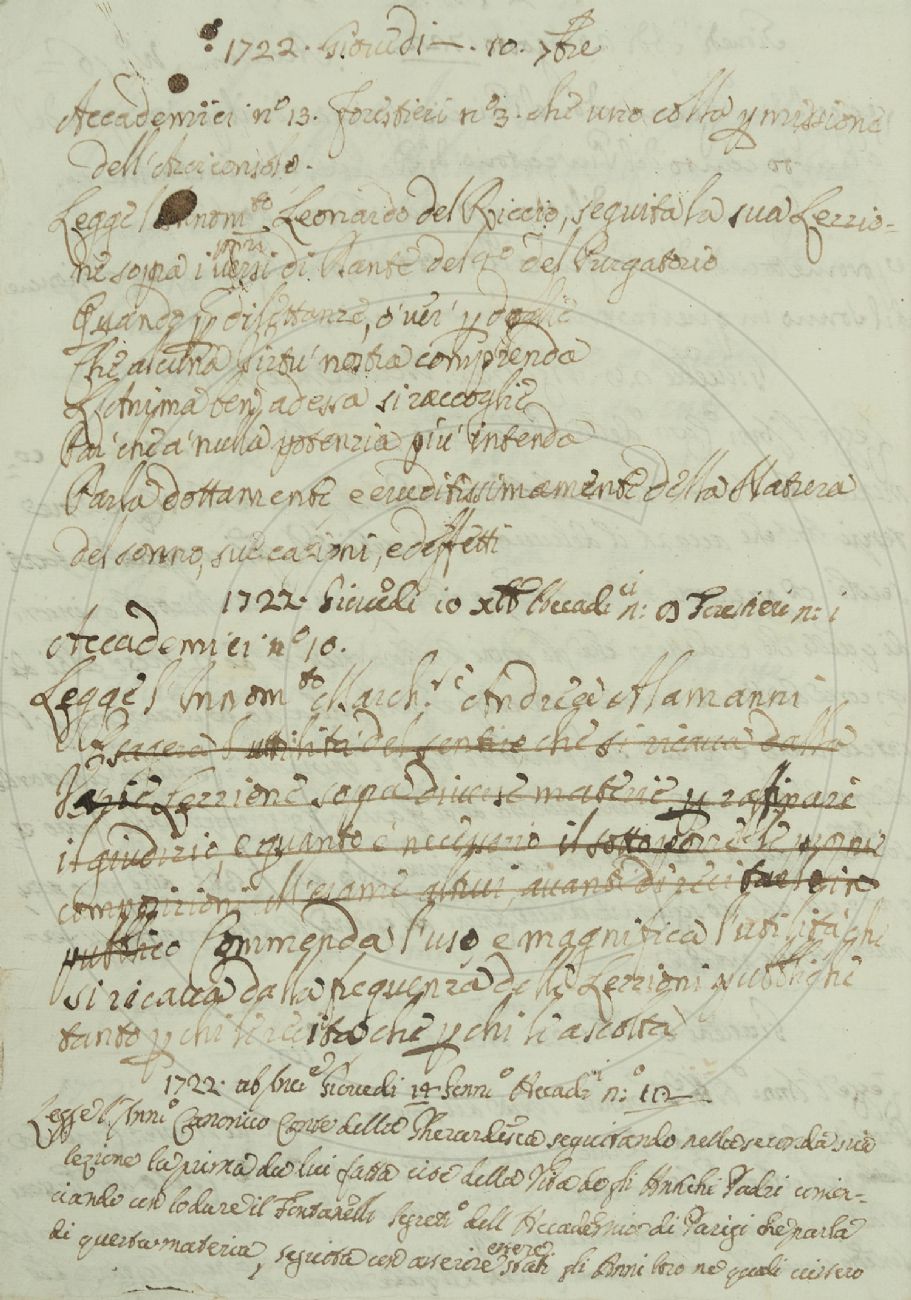 1722. Giovedi — . 10. 7bre
Accademici n.° 13. forestieri n.° 3. che uno colla p missione
dell'Arciconsolo.
Legge l'Innom.to Leonardo del Riccio, seguita la sua Lezzio=
ne sopra i versi di Dante del 4.° del Purgatorio
Quando p dilettanze, o' ver' p doglie
Che alcuna virtu' nostra comprenda
L'Anima ben, adessa si raccoglie
Par' che a' nulla potenzia piu' intenda
Parla dottamente e eruditissimamente della Natura
del sonno, sue cagioni, ed effetti
1722. Giovedi 10 xbre Accadi.ci n: 09 Forestieri n: 1
Accademici n.° 10.
Legge l'Innom.to March.e Andrea Alamanni
l'utilità del sentire che si ricava dalle
Lezzione sopra diverse materie p raffinare
il giudizio, e quanto è necessario il sottoporre le proprie
composizioni all'esame altrui, avanti di recitarle in
pubblico Commenda l'uso e magnifica l'utilità che
si ricava dalla frequenza delle Lezzioni pubbliche
tanto p chi le recita che p chi li ascolta
1722. ab Inc.e Giovedi 14 Genn.o Accad.ci n.° 10
Legge l'Inn.o Canonico Conte della Gherardesca seguitando nella seconda sua
lezione la prima da lui fatta cioè della Vita degli Antichi Padri comin=
ciando con lodare il Fontanelle Segret.o dell'Accademia di Parigi che parla
di questa materia, seguita con asserire essere stati gli Anni loro ne quali vissero